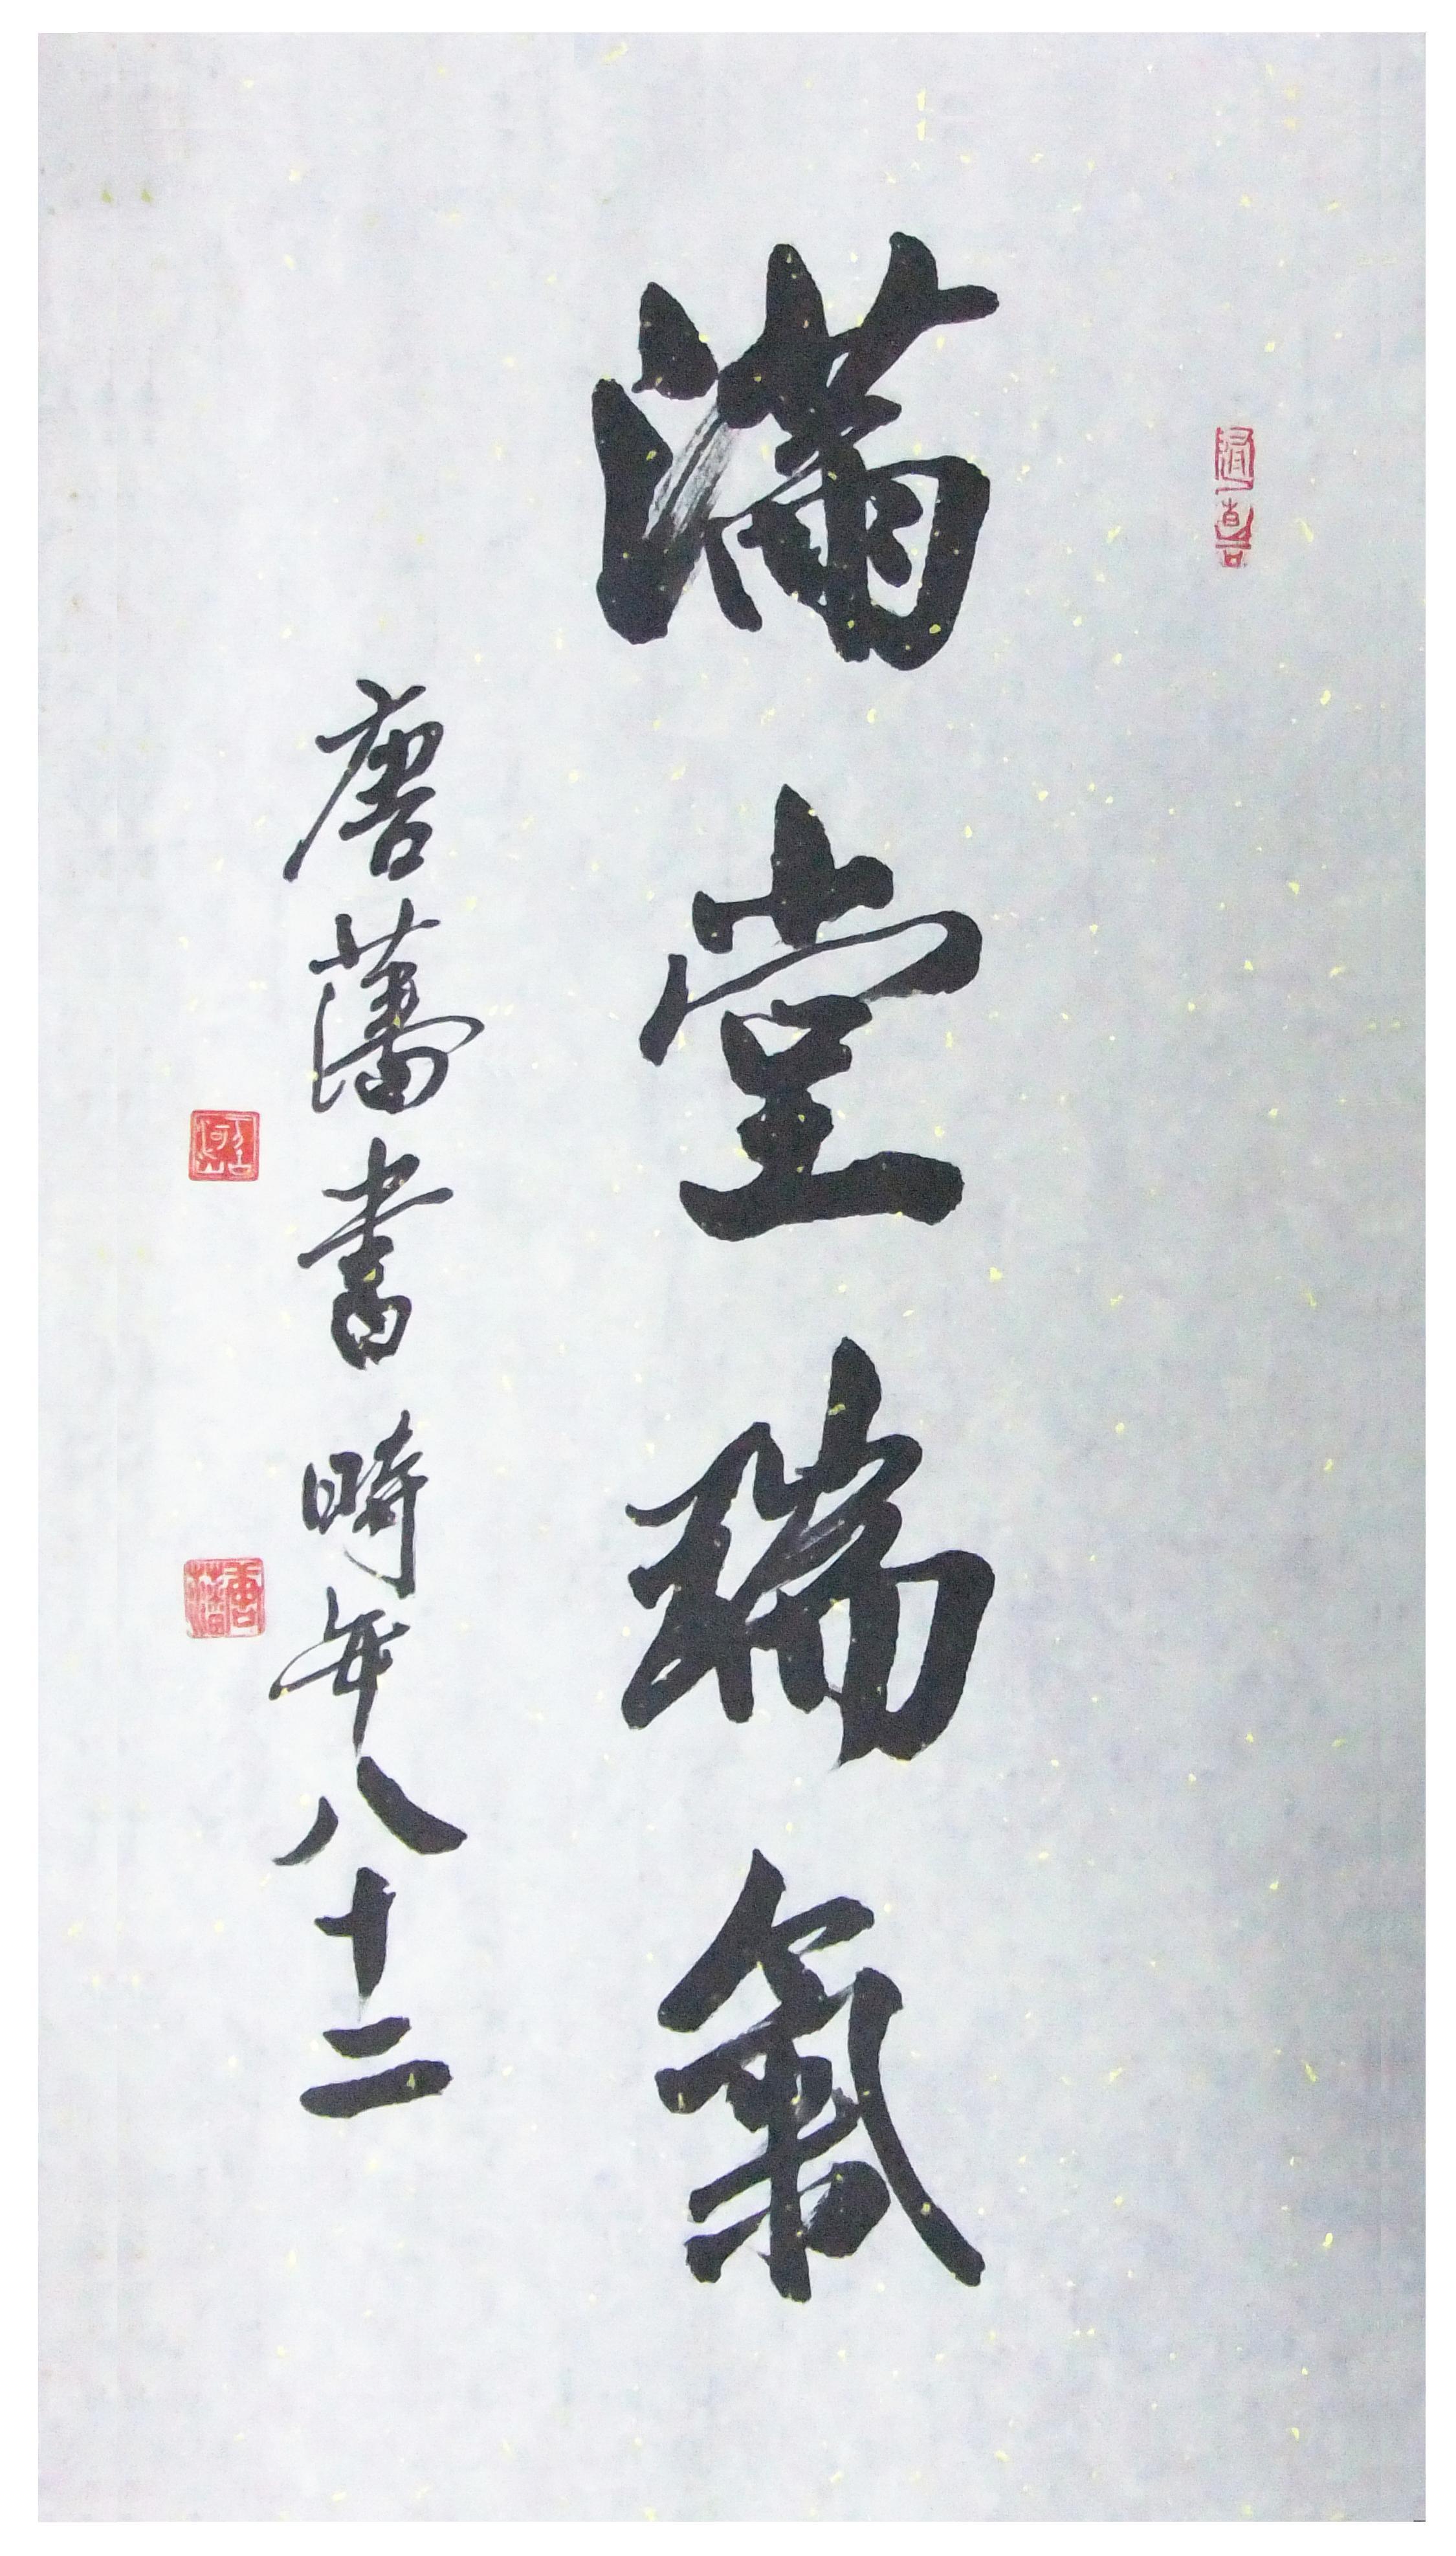 滿堂瑞氣
唐藩書時年八十二
唐藩